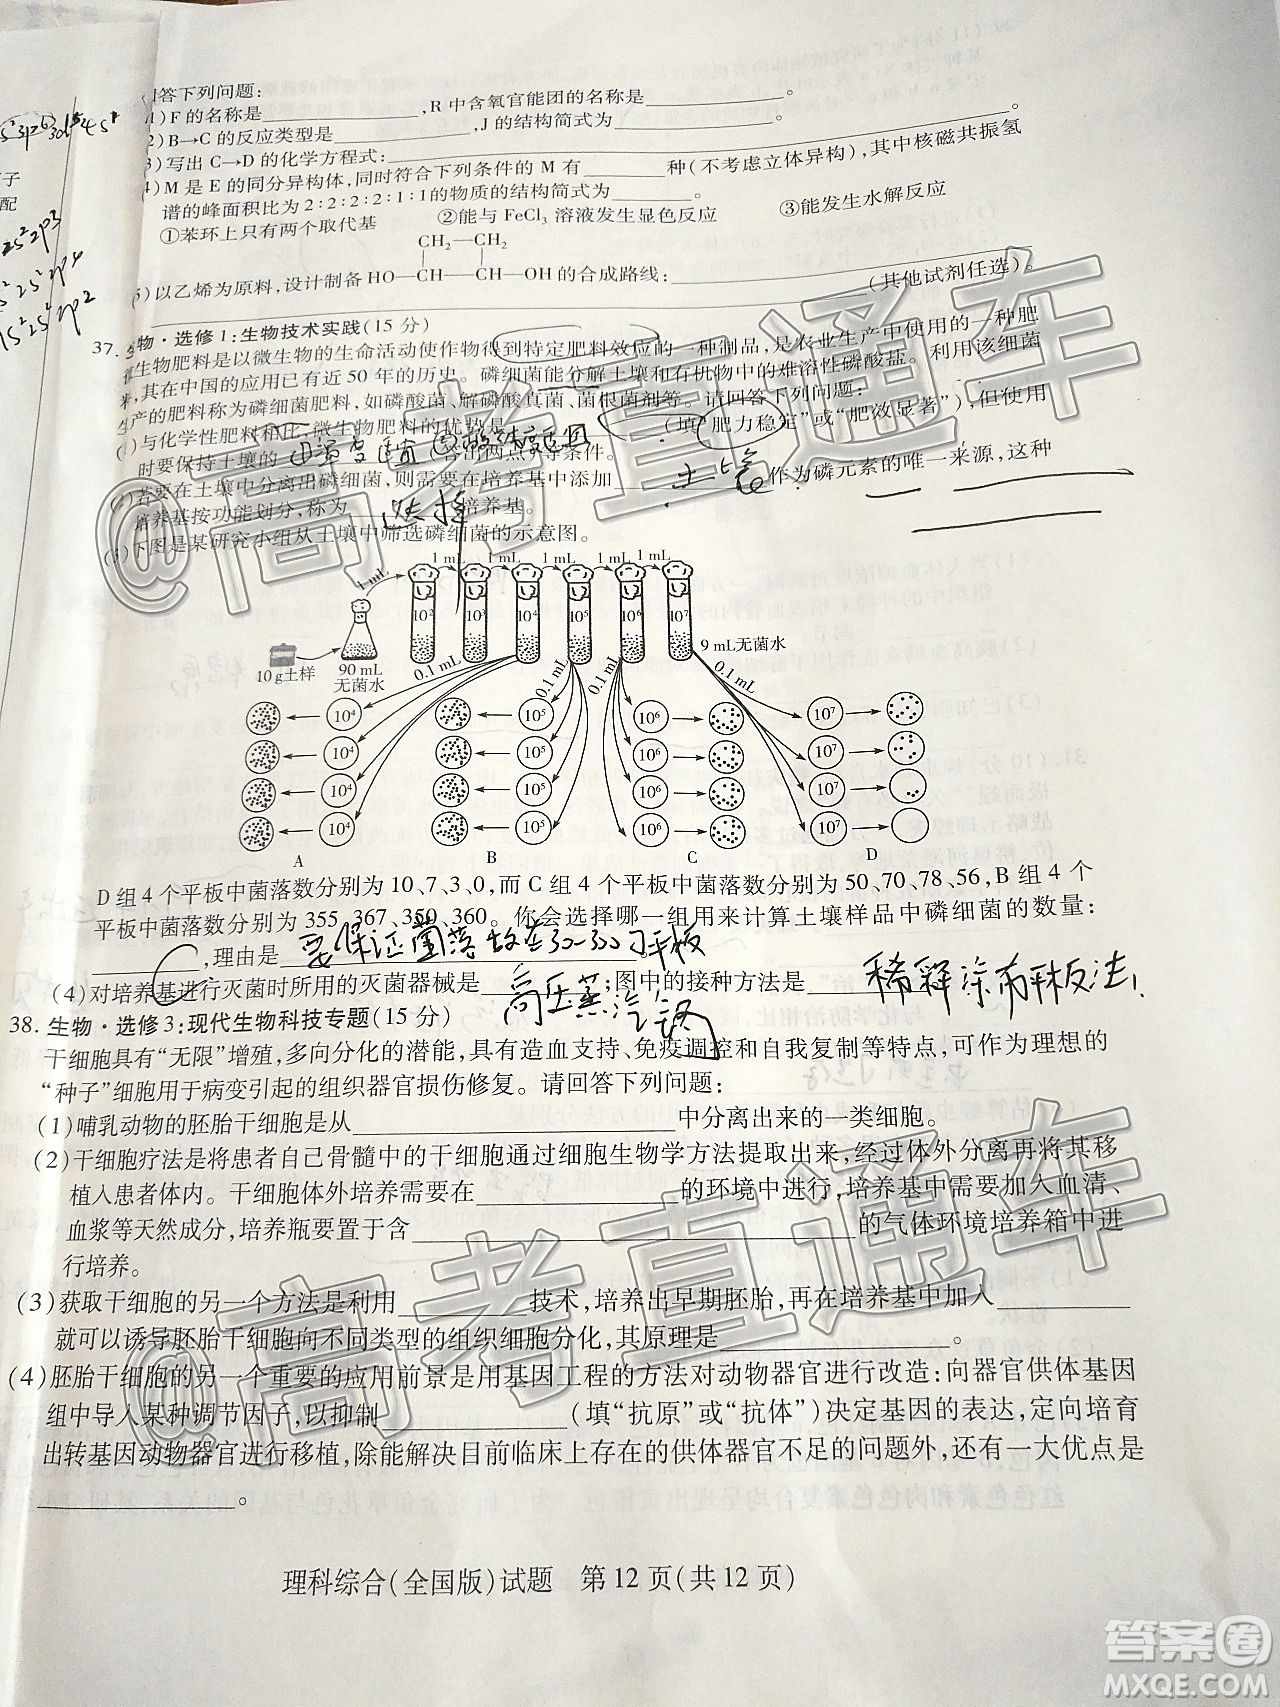 回答下列问题:
(1)F的名称是____________,R中含氧官能团的名称是____________。
(2)B→C的反应类型是____________,J的结构简式为____________。
(3)写出C→D的化学方程式:____________。
(4)M是E的同分异构体,同时符合下列条件的M有______种(不考虑立体异构),其中核磁共振氢
谱的峰面积比为2∶2∶2∶1∶1的物质的结构简式为____________。
①苯环上只有两个取代基 ②能与FeCl3溶液发生显色反应 ③能发生水解反应
CH2—CH2
(5)以乙烯为原料,设计制备HO—CH—CH—OH的合成路线:____________
____________(其他试剂任选)。
37. 生物·选修1:生物技术实践(15分)
微生物肥料是以微生物的生命活动使作物得到特定肥料效应的一种制品,是农业生产中使用的一种肥
料,其在中国的应用已有近50年的历史。磷细菌能分解土壤和有机物中的难溶性磷酸盐。利用该细菌
生产的肥料称为磷细菌肥料,如磷酸菌、解磷酸真菌、菌根菌剂等。请回答下列问题:
(1)与化学性肥料相比,微生物肥料的优势是______(填“肥力稳定”或“肥效显著”),但使
时要保持土壤的 ______(答出两点)等条件。
(2)若要在土壤中分离出磷细菌,则需要在培养基中添加______作为磷元素的唯一来源,这种
培养基按功能划分,称为 选择 培养基。
(3)下图是某研究小组从土壤中筛选磷细菌的示意图。
1 mL 1 mL 1 mL 1 mL 1 mL 1 mL
10² 10³ 10⁴ 10⁵ 10⁶ 10⁷
10 g土样 90 mL 无菌水 9 mL无菌水
0.1 mL 0.1 mL 0.1 mL 0.1 mL
10⁴ 10⁵ 10⁶ 10⁷
10⁴ 10⁵ 10⁶ 10⁷
10⁴ 10⁵ 10⁶ 10⁷
10⁴ 10⁵ 10⁶ 10⁷
A B C D
D组4个平板中菌落数分别为10、7、3、0,而C组4个平板中菌落数分别为50、70、78、56,B组4个
平板中菌落数分别为355、367、350、360。你会选择哪一组用来计算土壤样品中磷细菌的数量:
C,理由是 要保证菌落数在30-300的平板
(4)对培养基进行灭菌时所用的灭菌器械是 高压蒸汽锅;图中的接种方法是 稀释涂布平板法。
38. 生物·选修3:现代生物科技专题(15分)
干细胞具有“无限”增殖,多向分化的潜能,具有造血支持、免疫调控和自我复制等特点,可作为理想的
“种子”细胞用于病变引起的组织器官损伤修复。请回答下列问题:
(1)哺乳动物的胚胎干细胞是从____________中分离出来的一类细胞。
(2)干细胞疗法是将患者自己骨髓中的干细胞通过细胞生物学方法提取出来,经过体外分离再将其移
植入患者体内。干细胞体外培养需要在____________的环境中进行,培养基中需要加入血清、
血浆等天然成分,培养瓶要置于含____________的气体环境培养箱中进
行培养。
(3)获取干细胞的另一个方法是利用________技术,培养出早期胚胎,再在培养基中加入________
就可以诱导胚胎干细胞向不同类型的组织细胞分化,其原理是____________。
(4)胚胎干细胞的另一个重要的应用前景是用基因工程的方法对动物器官进行改造:向器官供体基因
组中导入某种调节因子,以抑制____________(填“抗原”或“抗体”)决定基因的表达,定向培育
出转基因动物器官进行移植,除能解决目前临床上存在的供体器官不足的问题外,还有一大优点是
____________。
理科综合(全国版)试题 第12页(共12页)
@高考直通车
@高考直通车
答案圈
MXQE.COM